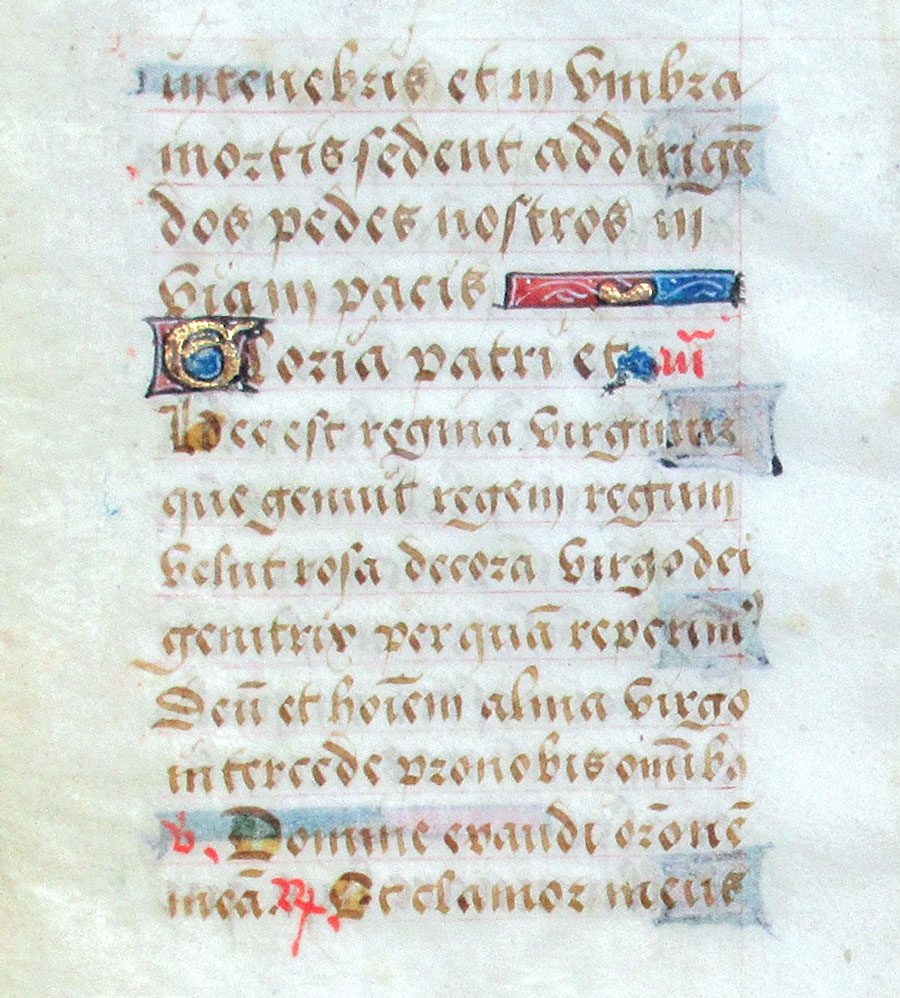 in tenebris et in vmbra
mortis sedent ad dirigē
dos pedes nostros in
viam pacis
Gloria patri et añ
Hec est regina virginuz
que genuit regem regum
velut rosa decora virgo dei
genitrix per quā reperim'
Deū et hoiēm alma virgo
intercede pro nobis omībꝫ
v. Domine exaudi orōnē
meā R Et clamor meus